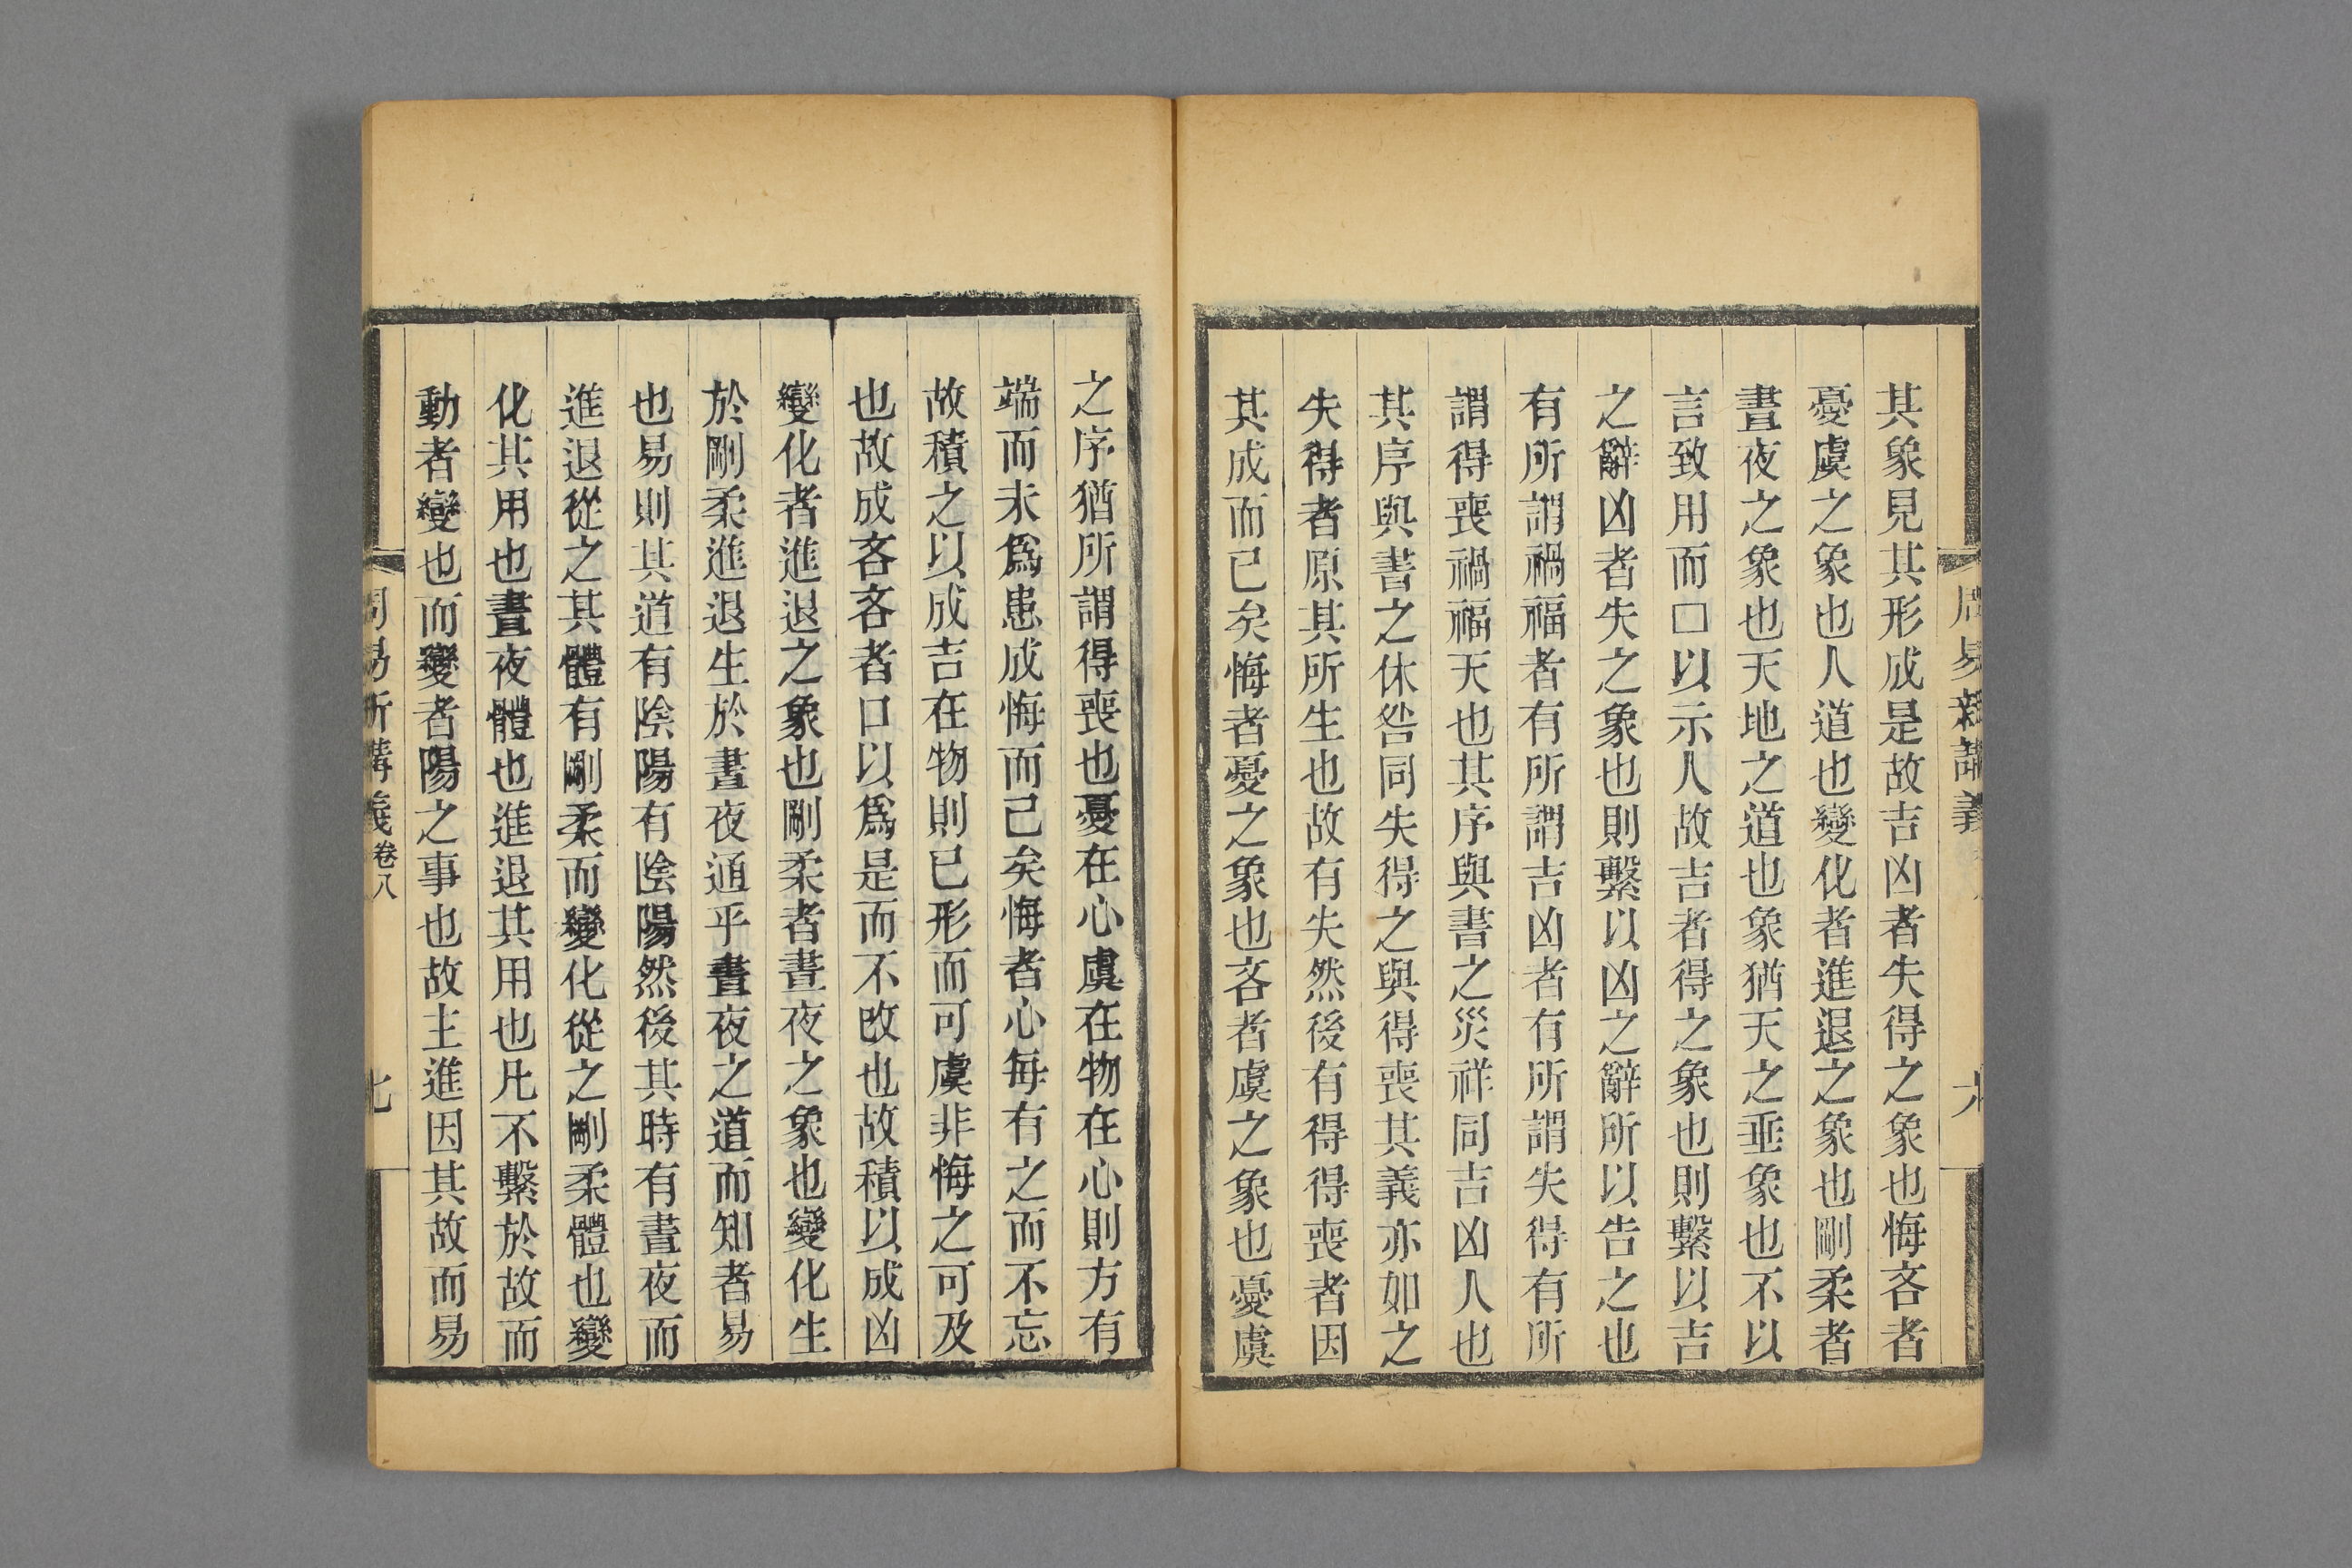 周易新講義
六
其象見其形成是故吉凶者失得之象也悔吝者
憂虞之象也人道也變化者進退之象也剛柔者
晝夜之象也天地之道也象猶天之垂象也不以
言致用而口以示人故吉者得之象也則繫以吉
之辭凶者失之象也則繫以凶之辭所以告之也
有所謂禍福者有所謂吉凶者有所謂失得有所
謂得喪禍福天也其序與書之災祥同吉凶人也
其序與書之休咎同失得之與得喪其義亦如之
失得者原其所生也故有失然後有得得喪者因
其成而已矣悔者憂之象也吝者虞之象也憂虞
之序猶所謂得喪也憂在心虞在物在心則方有
端而未爲患成悔而已矣悔者心每有之而不忘
故積之以成吉在物則已形而可虞非悔之可及
也故成吝吝者口以爲是而不改也故積以成凶
變化者進退之象也剛柔者晝夜之象也變化生
於剛柔進退生於晝夜通乎晝夜之道而知者易
也易則其道有陰陽有陰陽然後其時有晝夜而
進退從之其體有剛柔而變化從之剛柔體也變
化其用也晝夜體也進退其用也凡不繫於故而
動者變也而變者陽之事也故主進因其故而易
周易新講義卷八
七